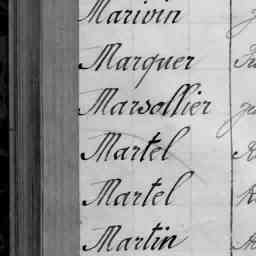 Marivin
Marquer
Marsollier
Martel
Martel
Martin